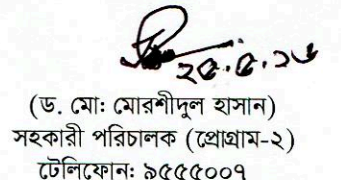 ২৫.৫.২৬
(ড. মো: মোরশীদুল হাসান)
সহকারী পরিচালক (প্রোগ্রাম-২)
টেলিফোন: ৯৫৫৫০০৭